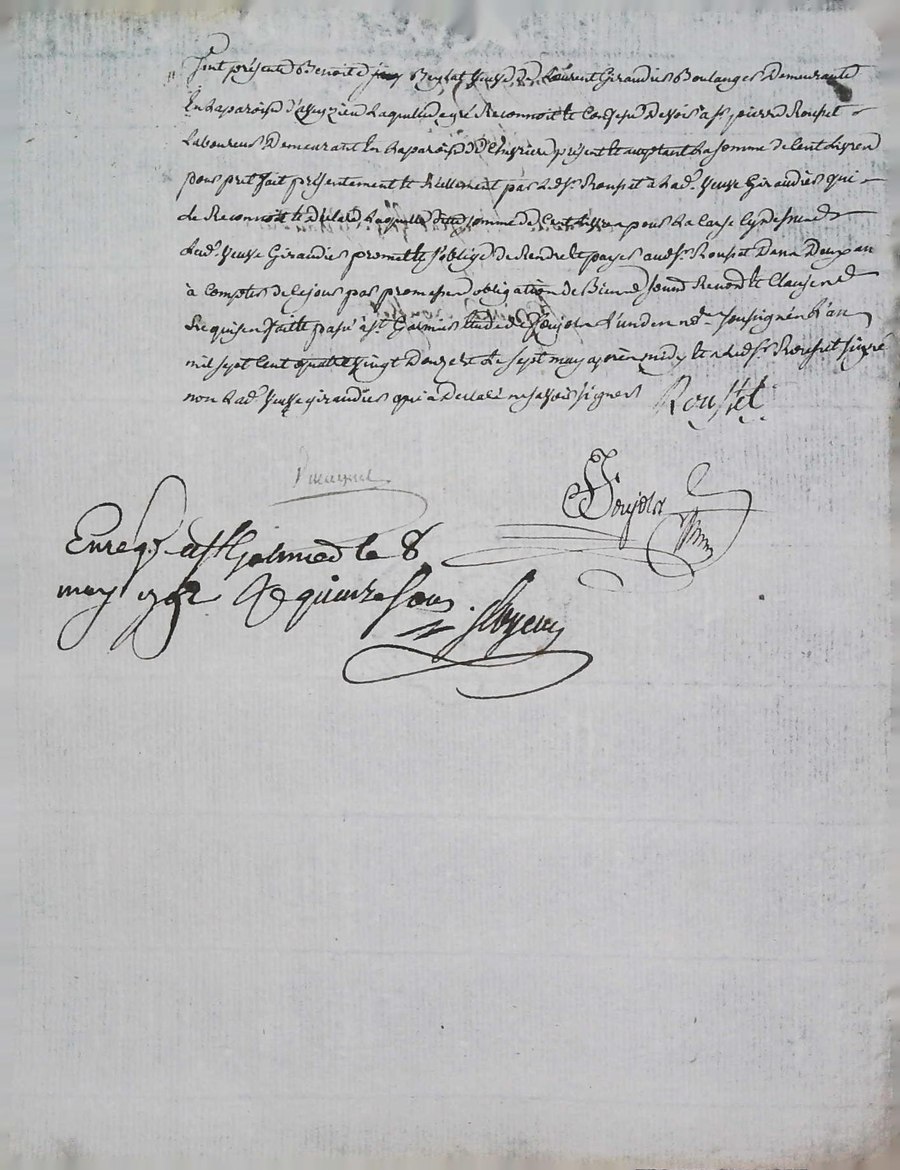 fut présente Benoite Reynat veuve de Laurent Giraudier Boulanger demeurante
En la paroisse d'aveyzieu Laquelle de gré Reconnoit et Confesse Devoir a Sr. pierre Rousset
Laboureur Demeurant En la paroisse de présent et acceptant La somme de Cent Livres
pour pret fait présentement et Réellement par Led. Sr. Rousset à Lad. veuve Giraudier qui
Le Reconnoit et Déclare Laquelle ditte somme de Cent Livres pour La Cause Cy dessus
Lad. veuve Giraudier promet et s'oblige de Rendre et payer aud. Sr. Rousset Dans Deux ans
à Compter de Ce jour par promesses obligation de Biens soumis Renon et Clauses
Requises fait et passé à St. Galmier Etude de Poujola L'un des nres. soussignés L'an
mil sept Cent quatre vingt Douze et Le sept may après midy et a Led. Sr. Rousset signé
non Lad. veuve giraudier qui a Declaré ne savoir signer Rousset
Poujola
Enreg. à St Galmier le 8
may 1792 R quinze sous.